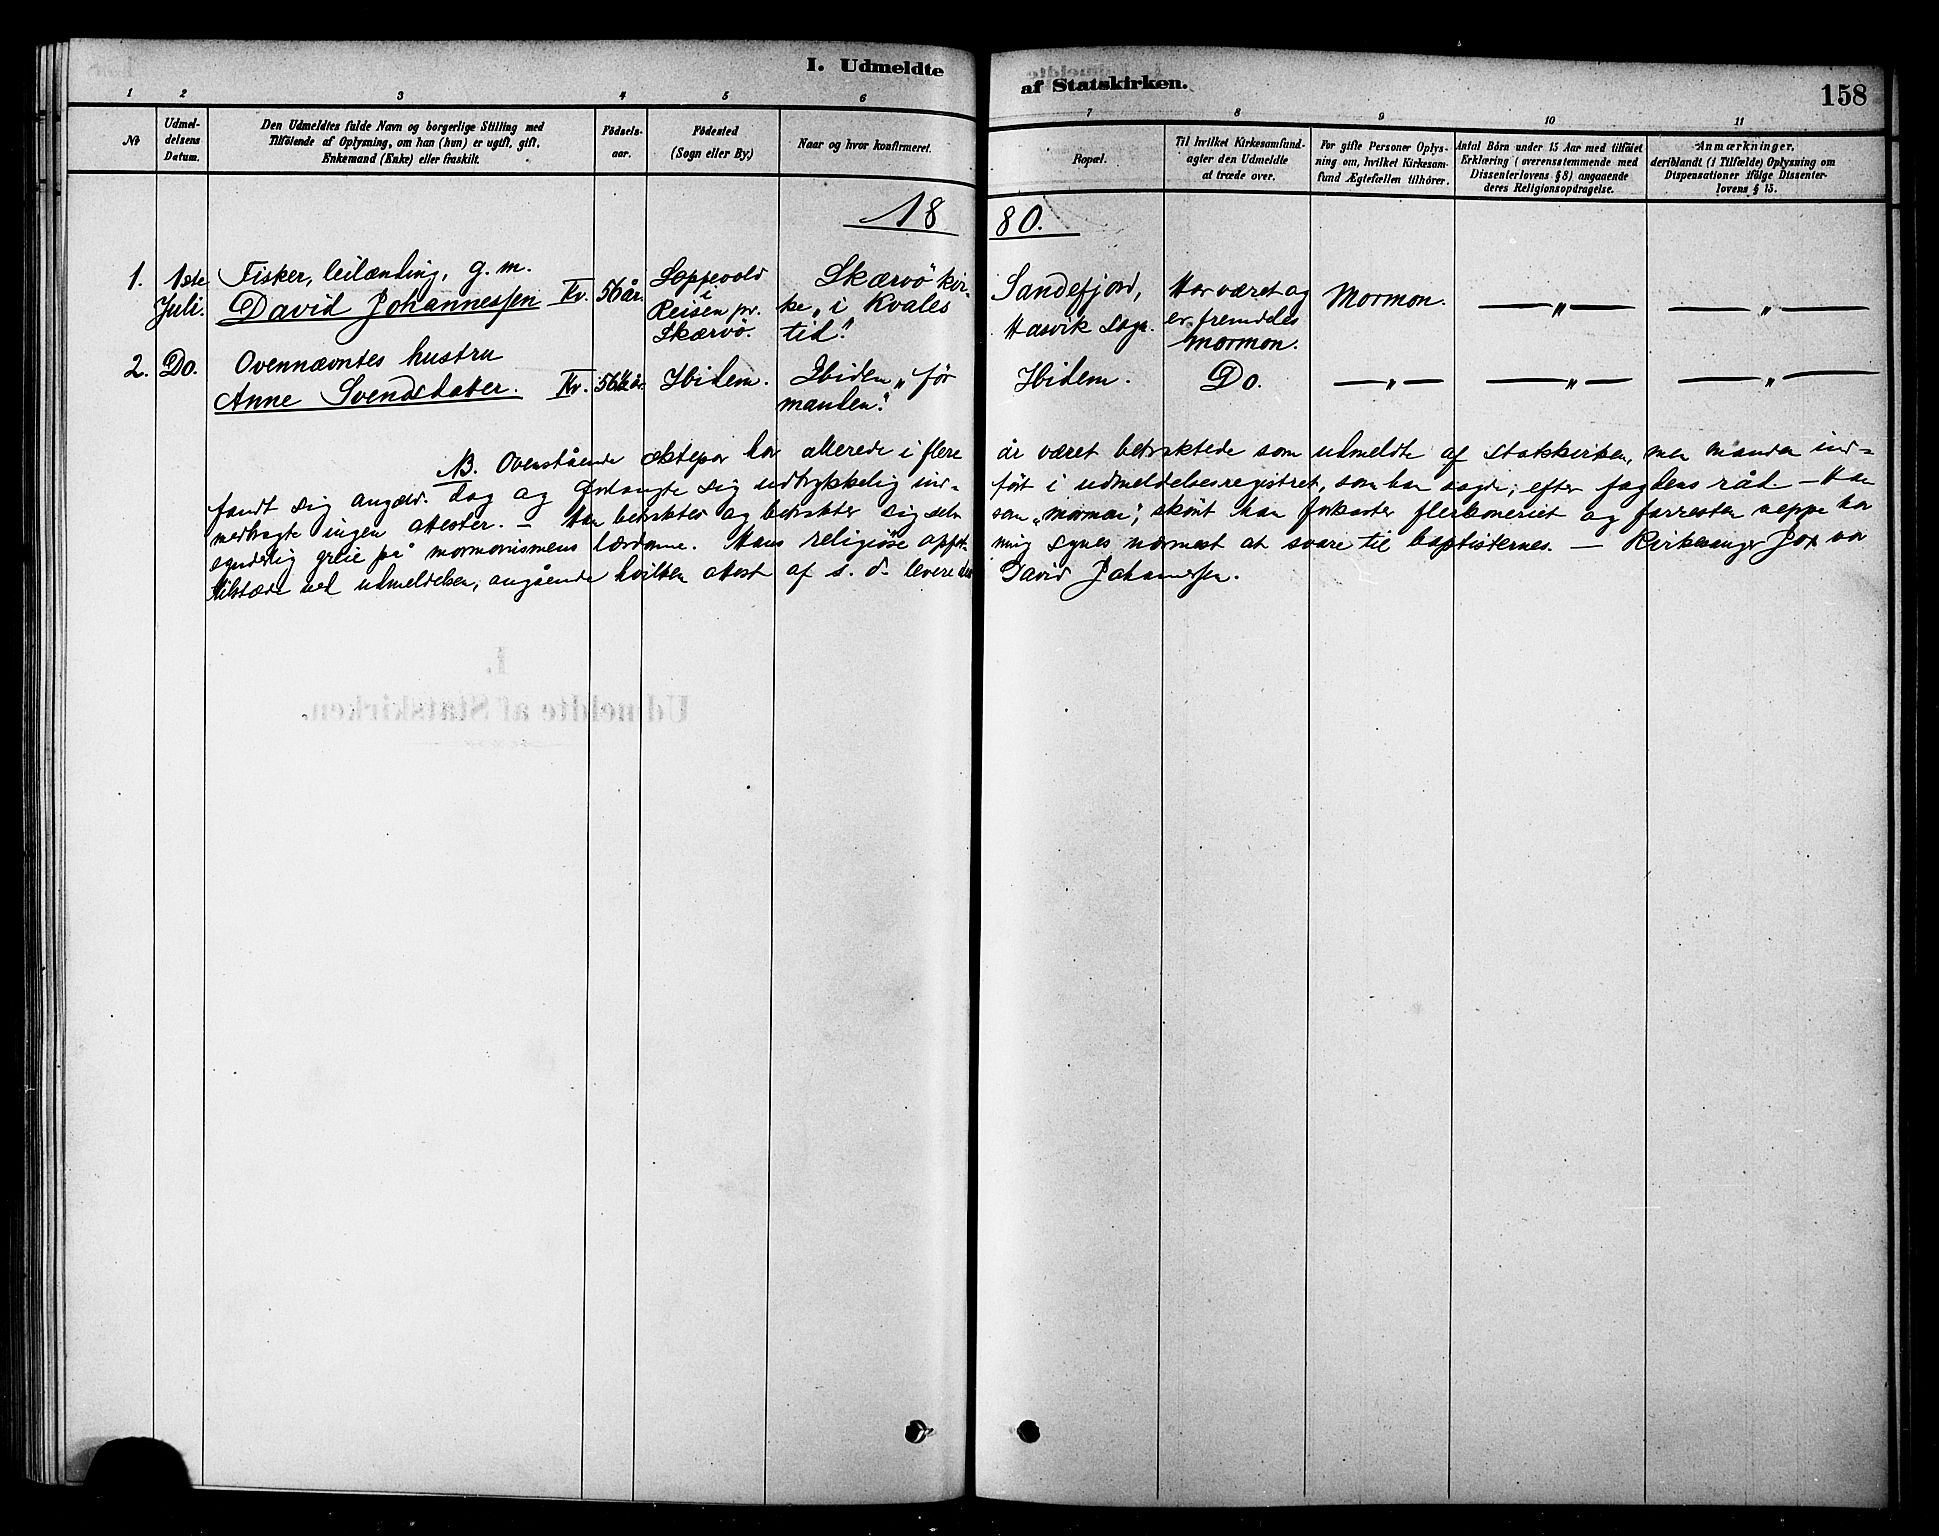 I. Udmeldte
af Statskirken.
158
1 2 3 4 5 6 7 8 9 10 11
No
Udmel-
delsens
Datum.
Den Udmeldtes fulde Navn og borgerlige Stilling med
Tilföiende af Oplysning, om han (hun) er ugift, gift,
Enkemand (Enke) eller fraskilt.
Födsels-
aar.
Födested
(Sogn eller By.)
Naar og hvor konfirmeret.
Bopæl.
Til hvilket Kirkesamfund
agter den Udmeldte
at træde over.
For gifte Personer Oplys-
ning om, hvilket Kirkesam-
fund Ægtefællen tilhörer.
Antal Börn under 15 Aar med tilföiet
Erklæring (overensstemmende med
Dissenterlovens § 8) angaaende
deres Religionsopdragelse.
Anmærkninger,
deriblandt (i Tilfælde) Oplysning om
Dispensationer ifölge Dissenter-
lovens § 15.
18
80.
1.
1ste
Juli.
Fisker, leilænding, g. m.
David Johannessen Kv.
56 år.
Soppevold
i
Reisen pr.
Skærvö.
Skærvö kir-
ke, „i Kvales
tid".
Sandefjord,
Hasvik sogn.
Har været og
er fremdeles
mormon.
Mormon.
— „ —
— „ —
2.
Do.
Ovennævntes hustru
Anne Svendsdatter. Kv.
56½ år.
Ibidem.
Ibidem „før
manden".
Ibidem.
Do.
— „ —
— „ —
— „ —
NB. Ovenstående ektepar har allerede i flere år været betraktede som udmeldte af statskirken, men manden ind-
fandt sig angæld. dag og forlangte sig udtrykkelig ind-ført i udmeldelsesregistret, som han sagde; efter fogdens råd — Han
medbragte ingen attester. — Han betrakter og betrakter sig selv som „mormon", skönt han forkaster flerkoneriet og forresten neppe har
synderlig greie på mormonismens lærdomme. Hans religiöse opfat-ning synes nærmest at svare til baptisternes. — Kirkesanger var
tilstæde ved udmeldelsen, angående hvilken attest af s. d. leveredes David Johannessen.